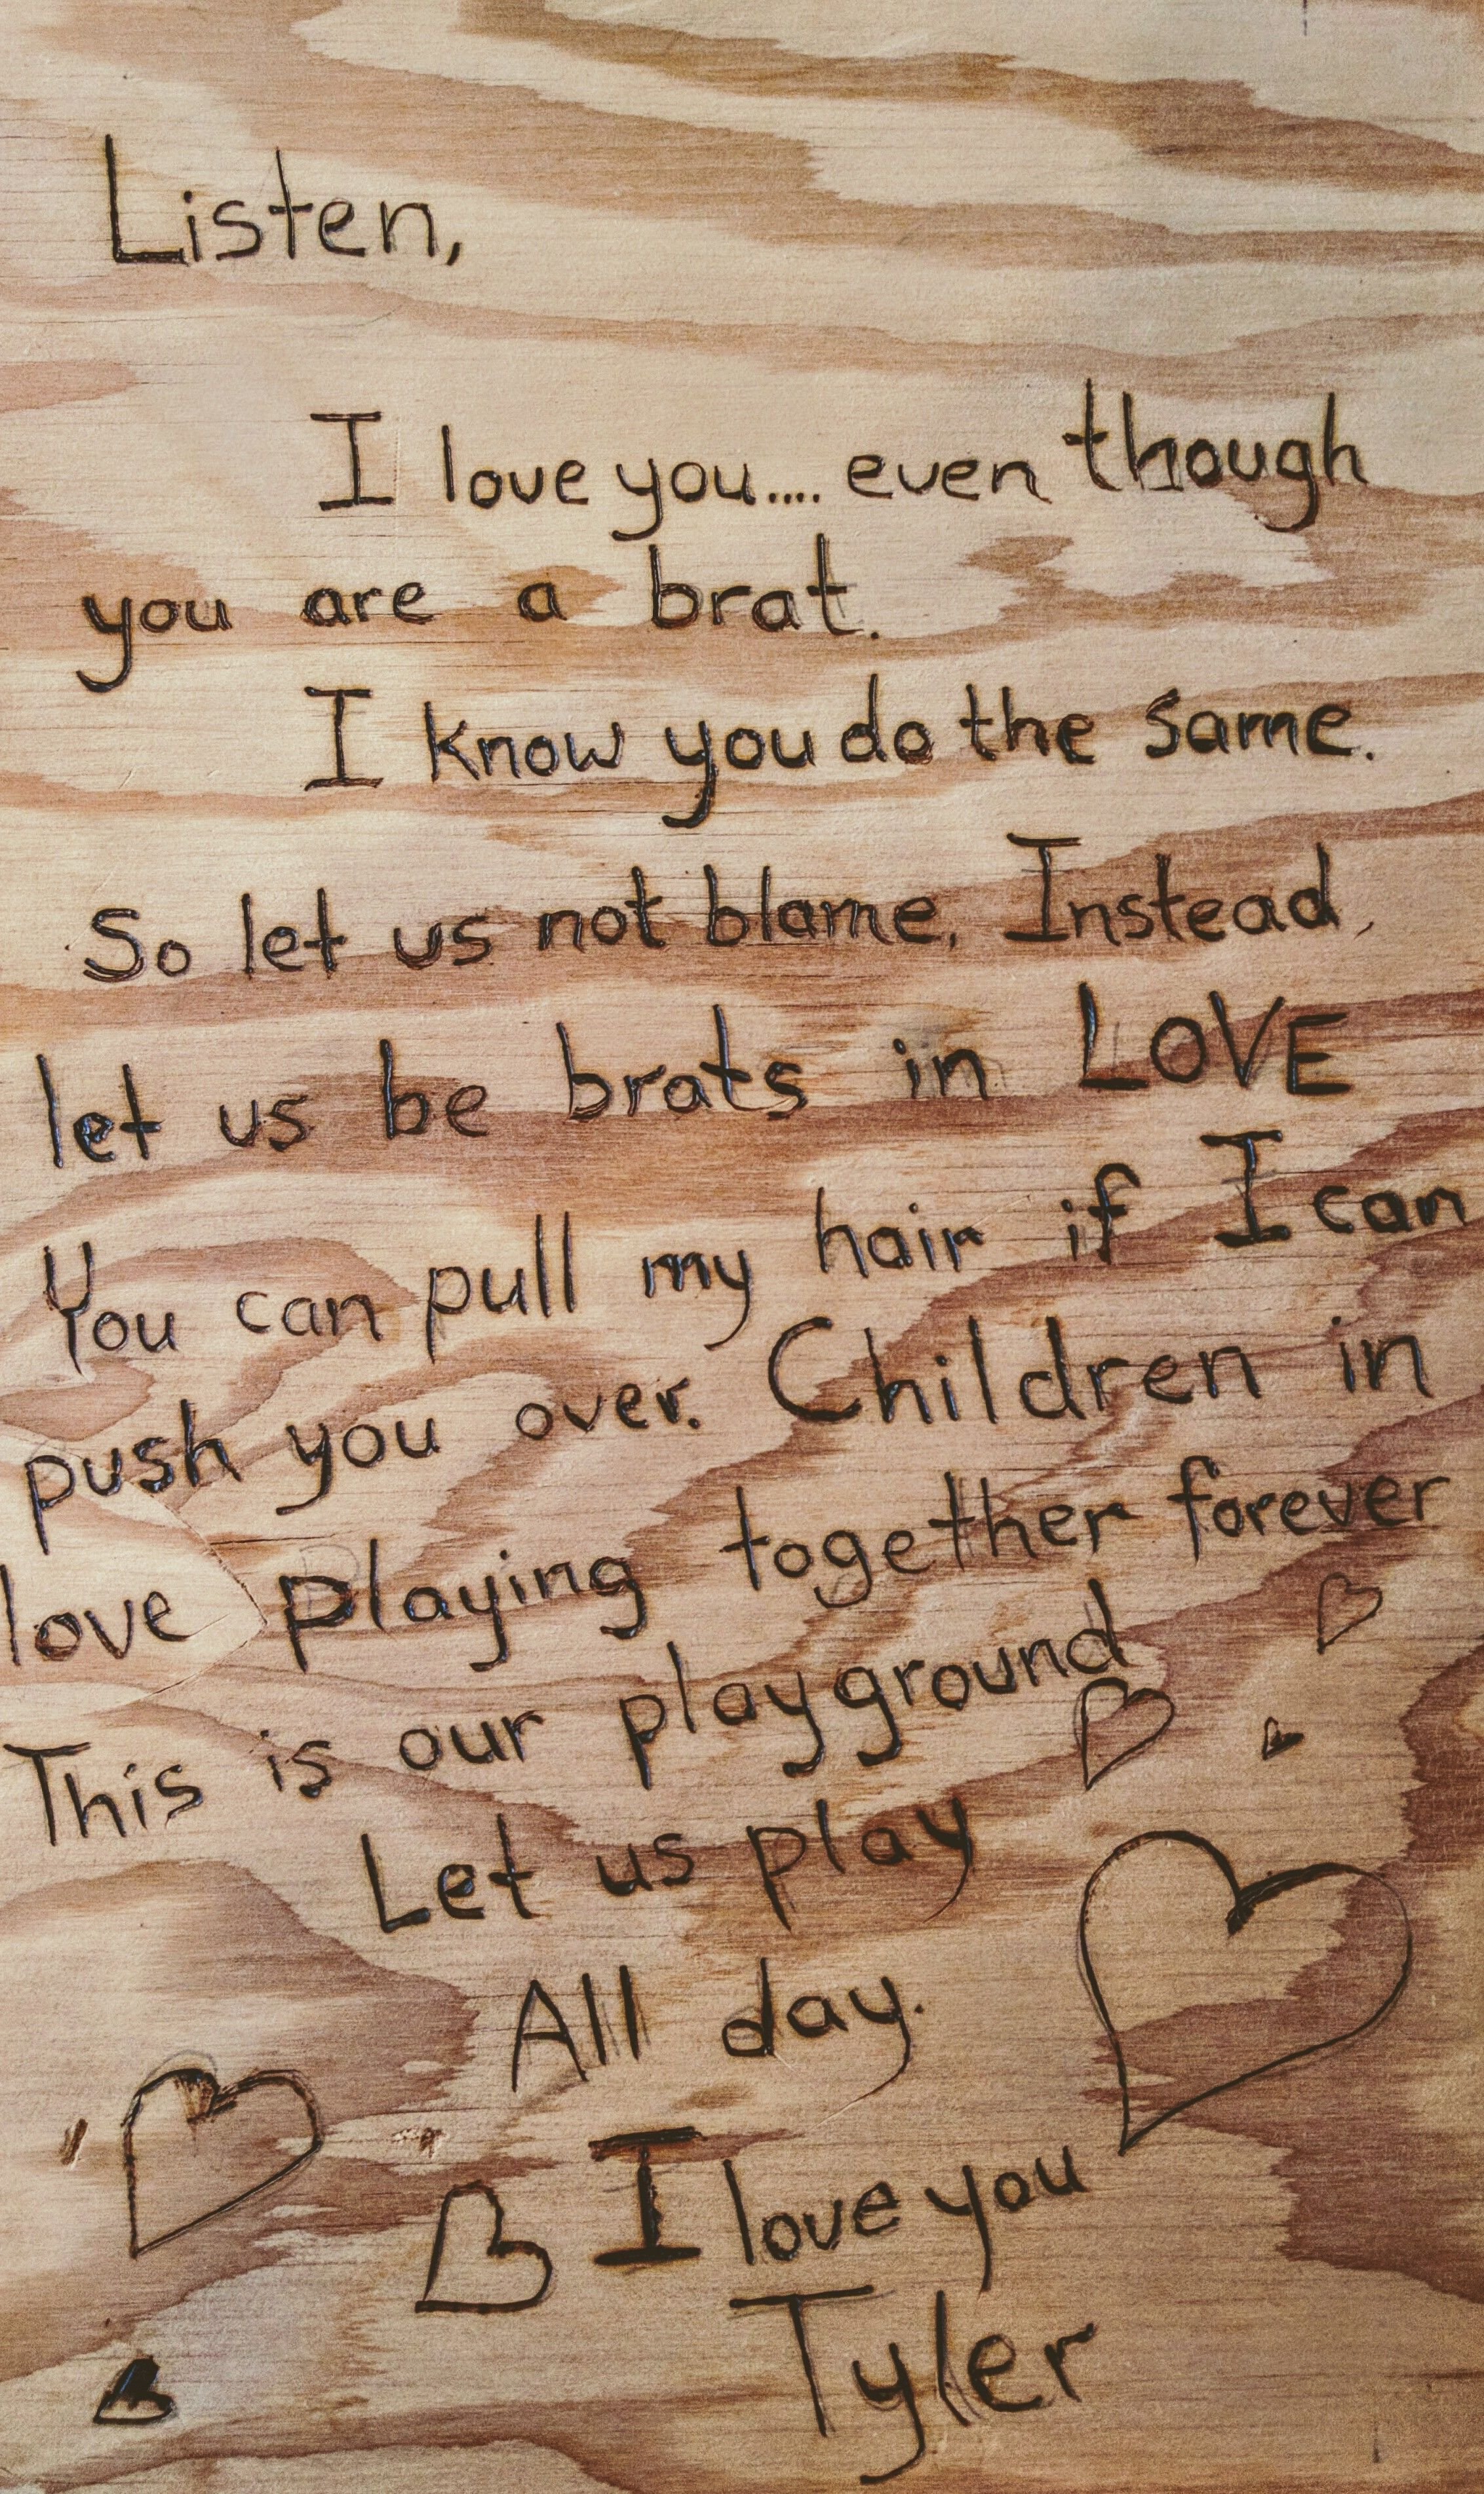 Listen,
I love you.... even though
you are a brat.
I know you do the same.
So let us not blame. Instead,
let us be brats in LOVE
You can pull my hair if I can
push you over. Children in
love playing together forever
This is our playground
Let us play
All day.
I love you
Tyler